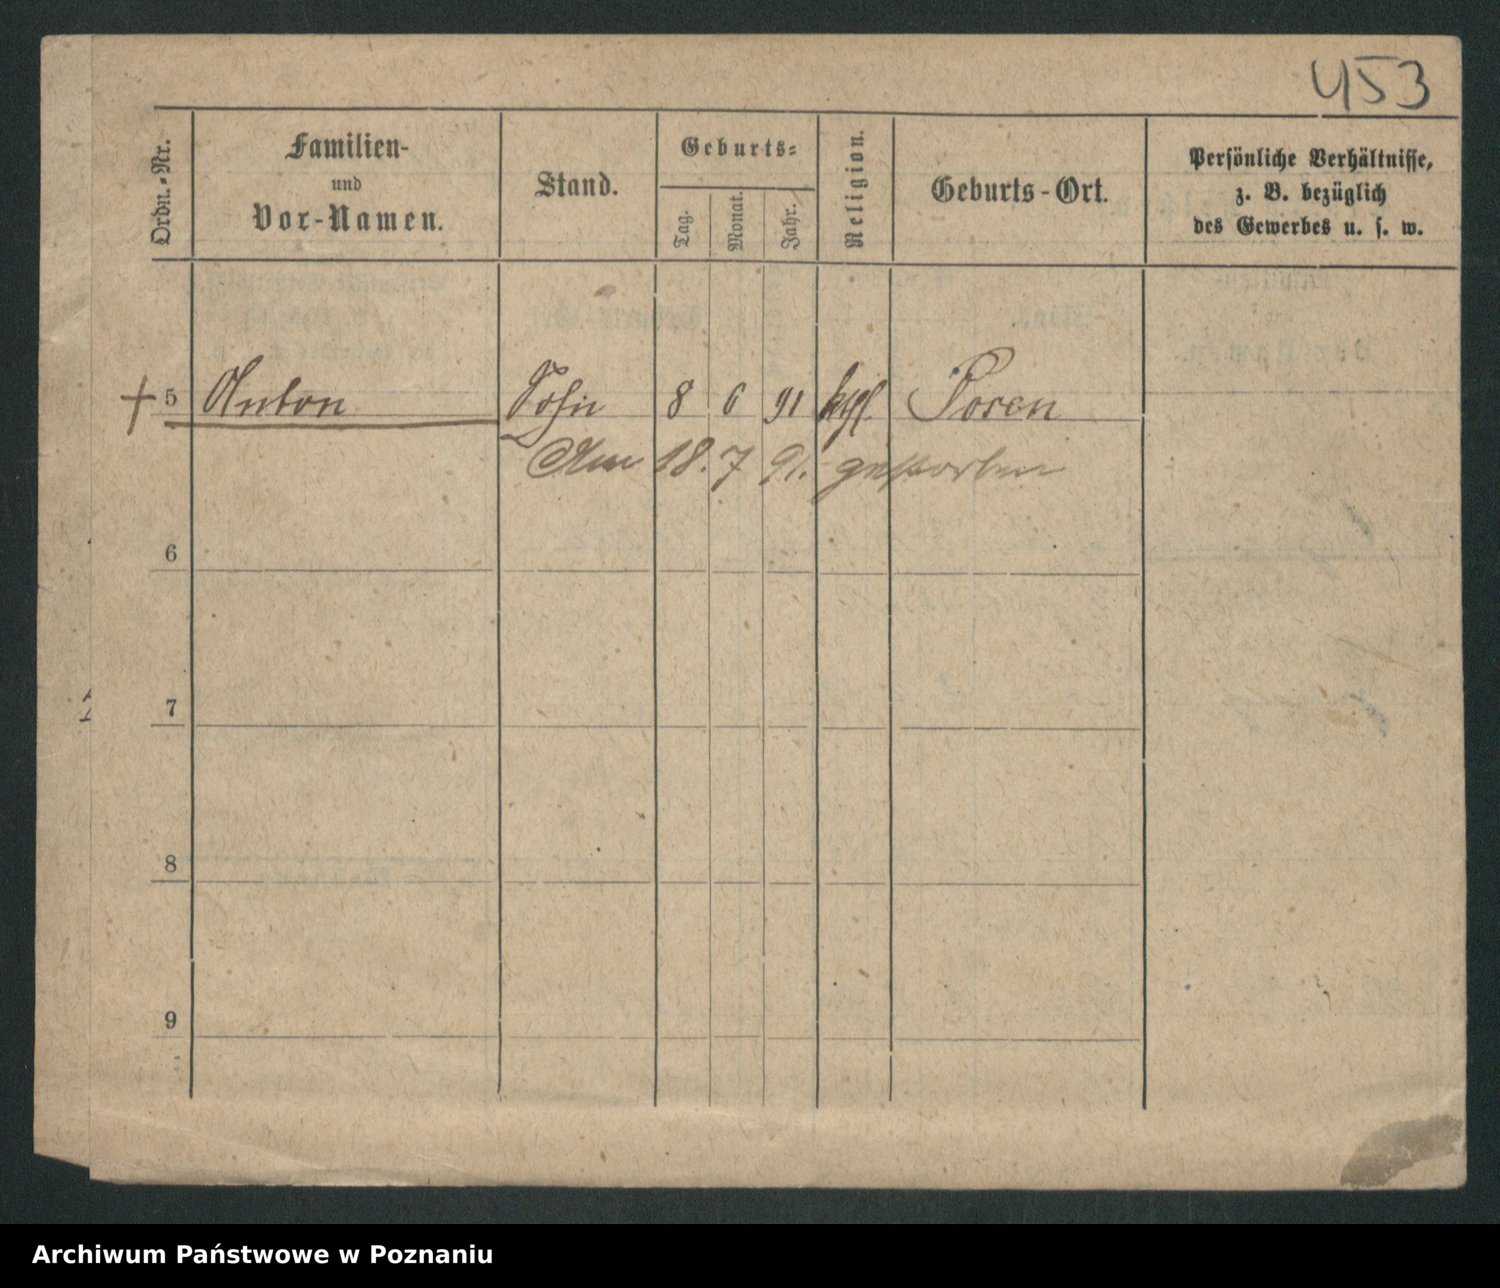 453
Ordn.-Nr.
Familien-
und
Vor-Namen.
Stand.
Geburts-
Tag.
Monat.
Jahr.
Religion.
Geburts-Ort.
Persönliche Verhältnisse,
z. B. bezüglich
des Gewerbes u. s. w.
+ 5 Anton Sohn 8 6 91 kath. Posen
Am 18. 7 91. gestorben
6
7
8
9
Archiwum Państwowe w Poznaniu